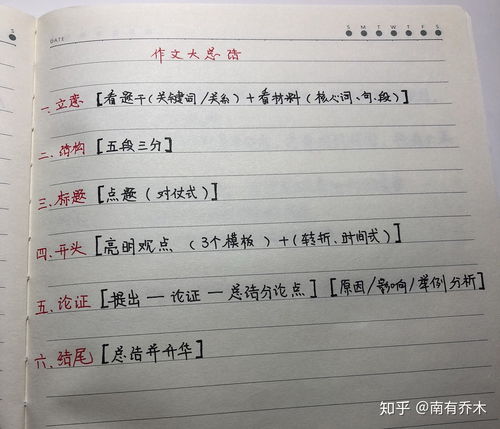 S
DATE
S M T W T F S
作文大总结
一.立意 [看题干(关键词/关系)+看材料(核心词、句、段)]
二.结构 [五段三分]
三.标题 [点题(对仗式)]
四.开头 [亮明观点 (3个模板)+(转折、时间式)]
五.论证 [提出—论证—总结分论点] [原因/影响/举例分析]
六.结尾 [总结并升华]
知乎 @南有乔木